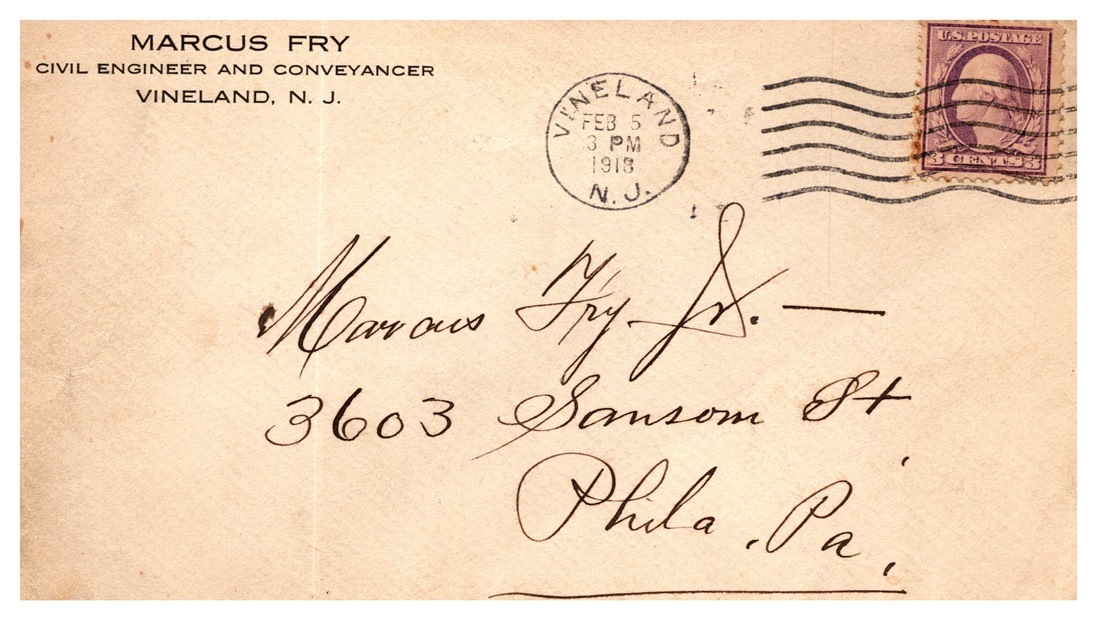 MARCUS FRY
CIVIL ENGINEER AND CONVEYANCER
VINELAND, N. J.
VINELAND
FEB 5
3 PM
1918
N. J.
U.S. POSTAGE
3 CENTS 3
Marcus Fry Jr. —
3603 Sansom St
Phila, Pa,